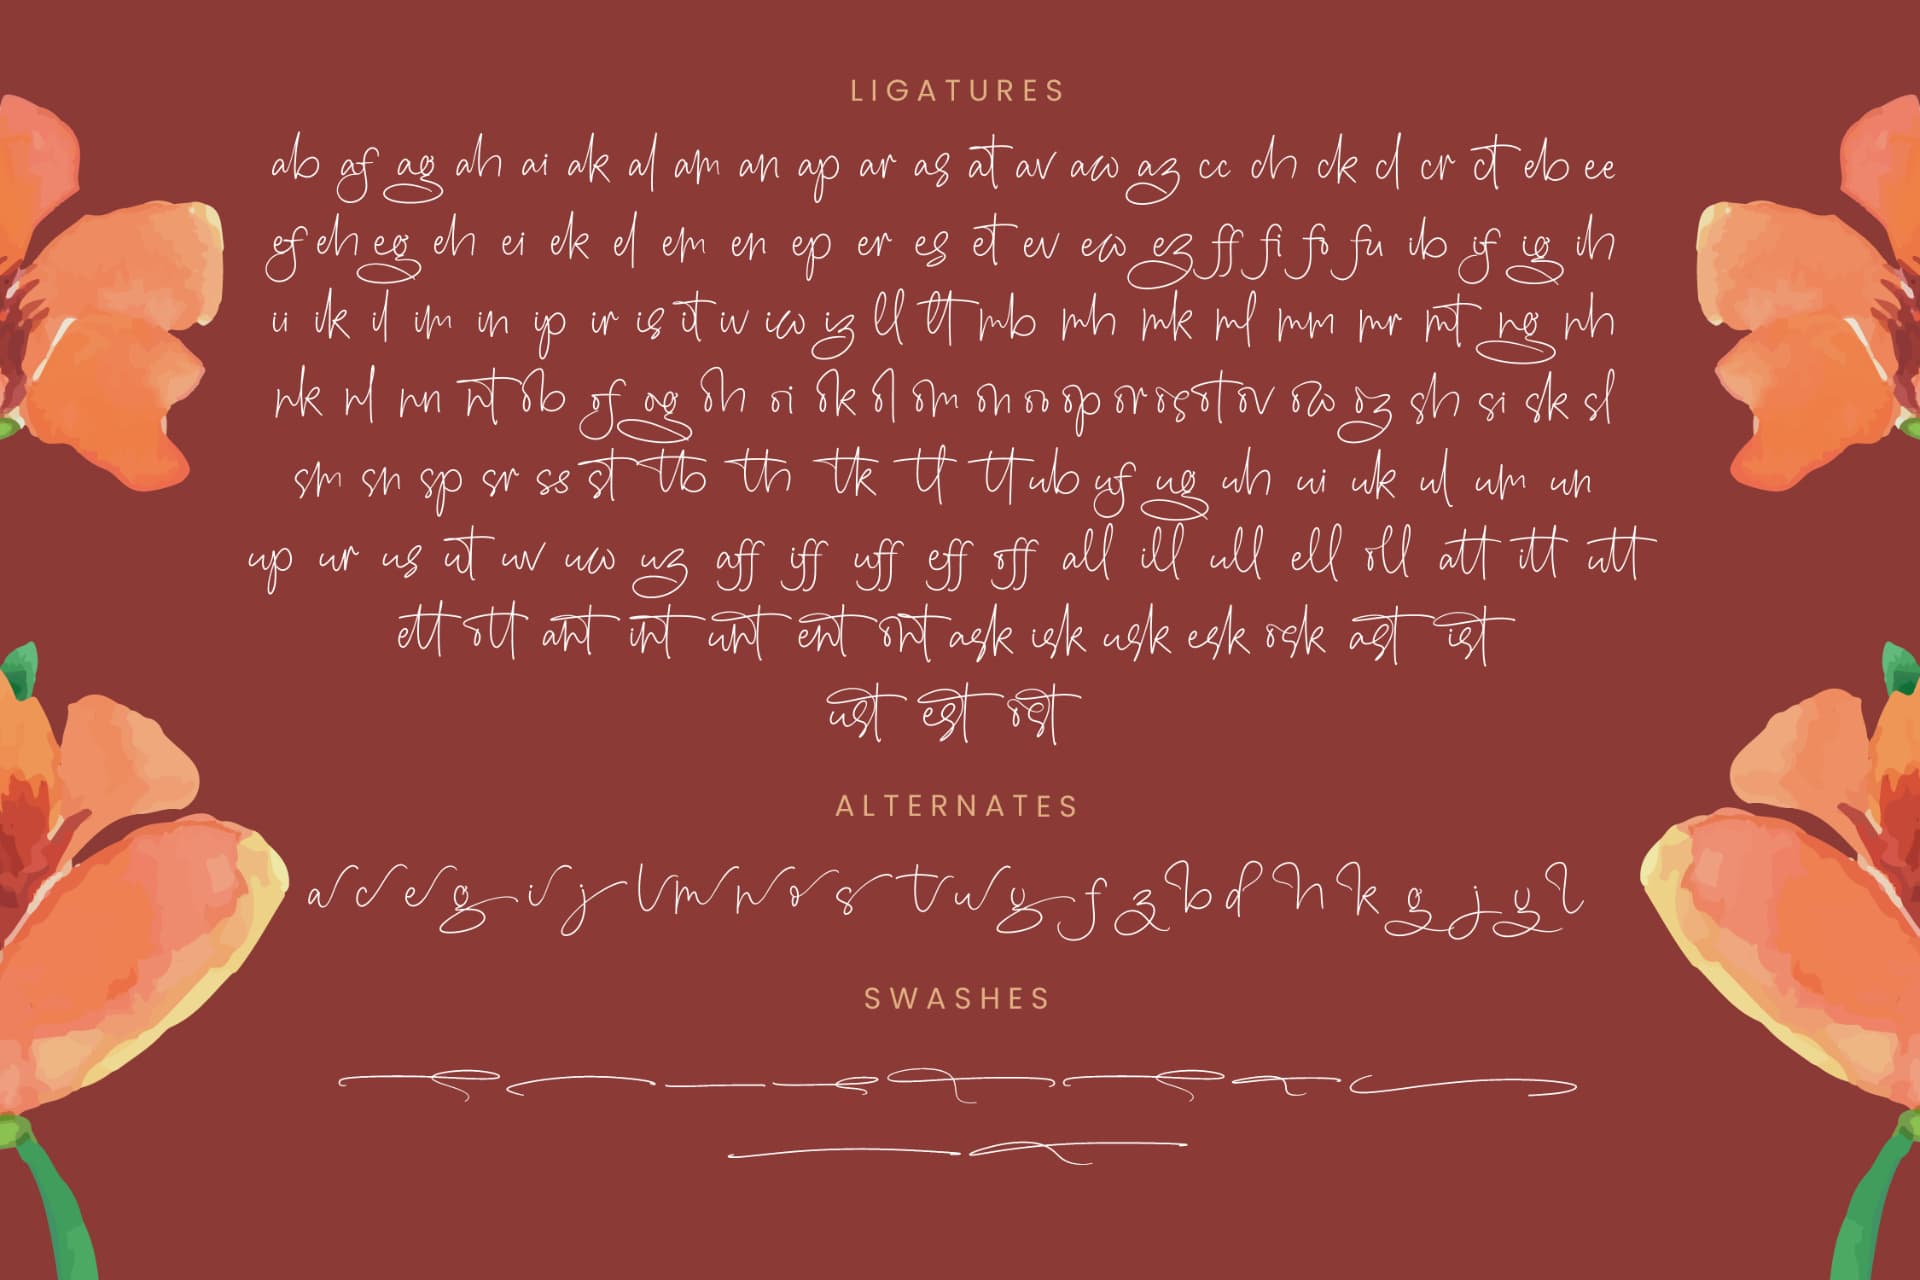 LIGATURES
ab af ag ah ai ak al am an ap ar as at av aw az cc ch ck cl cr ct eb ee
ef eh eg eh ei ek el em en ep er es et ev ew ez ff fi fo fu ib if ig ih
ii ik il im in ip ir is it iv iw iz ll lt mb mh mk ml mm mr mt ng nh
nk nl nn nt ob of og oh oi ok ol om on oo op or os ot ov ow oz sh si sk sl
sm sn sp sr ss st tb th tk tl tt ub uf ug uh ui uk ul um un
up ur us ut uv uw uz aff iff uff eff off all ill ull ell oll att itt utt
ett ott ant int unt ent ont ask isk usk esk osk ast ist
ust est ost
ALTERNATES
a c e g i j l m n o s t u y f z b d h k g j y l
SWASHES